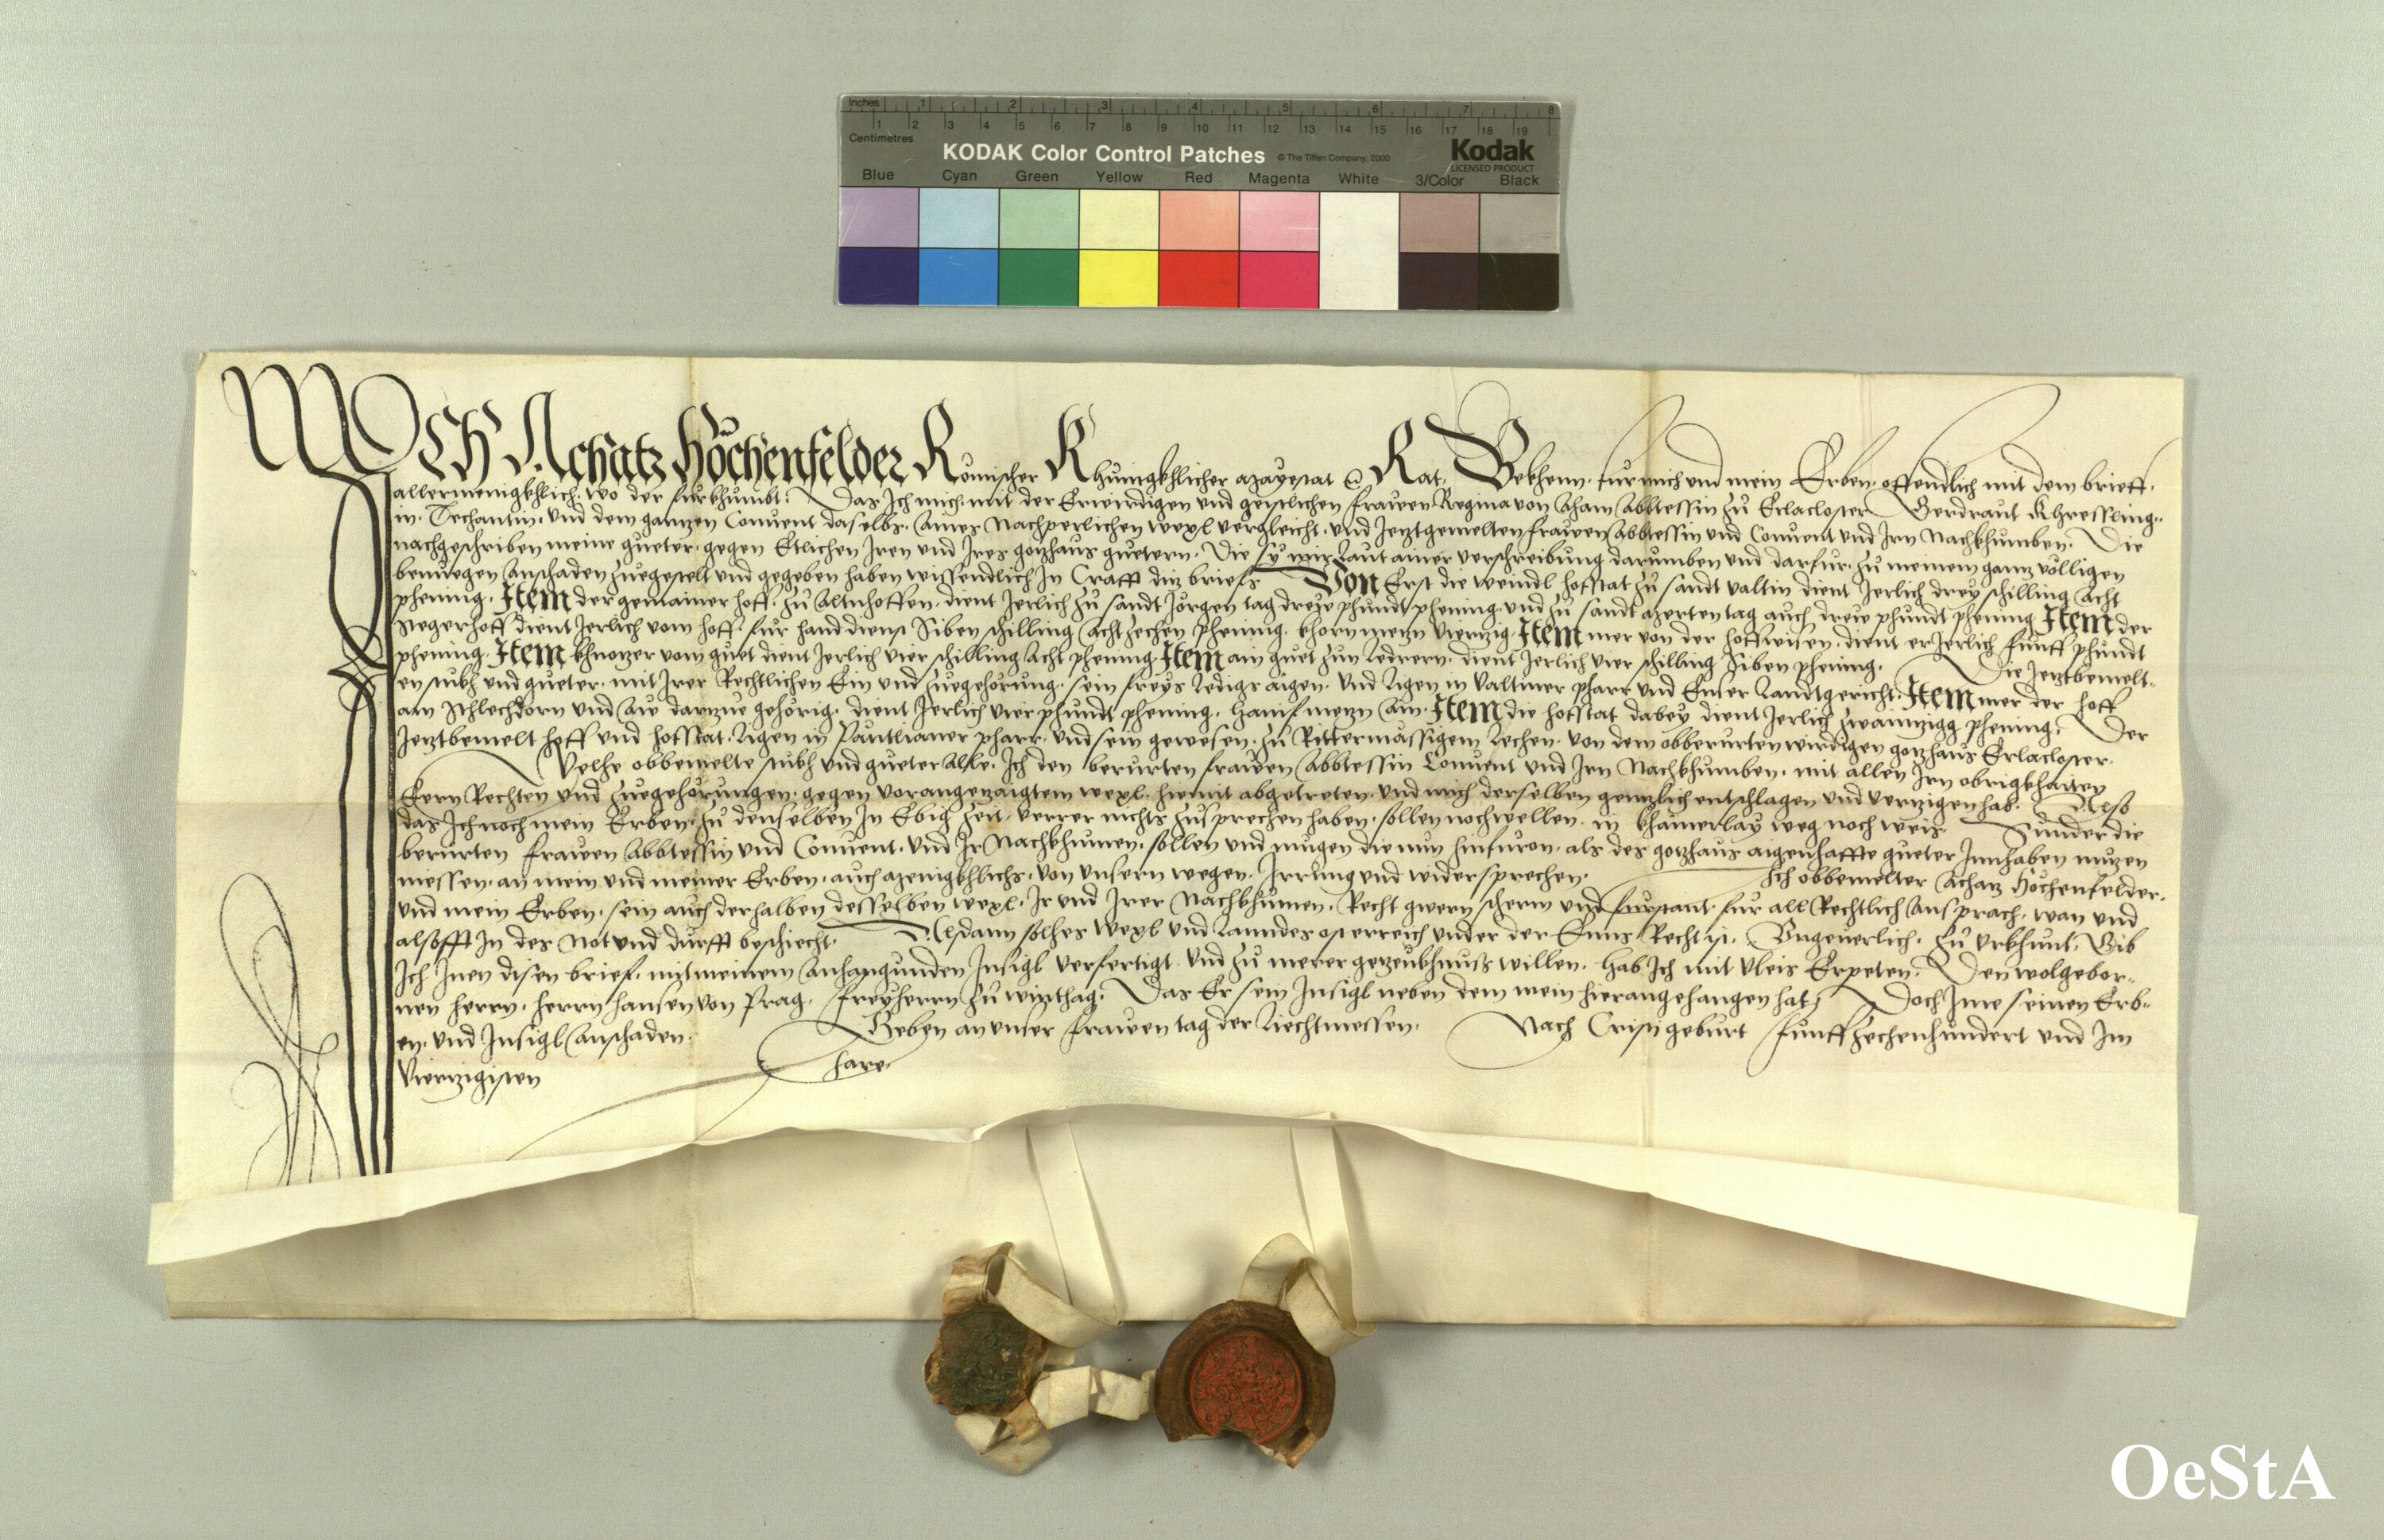 Inches 1 2 3 4 5 6 7 8
1 2 3 4 5 6 7 8 9 10 11 12 13 14 15 16 17 18 19
Centimetres
KODAK Color Control Patches © The Tiffen Company, 2000 Kodak
LICENSED PRODUCT
Blue Cyan Green Yellow Red Magenta White 3/Color Black
ICH Achatz Höchenfelder Römischer Khunigkhlicher Mayestat Rat, Bekhenn, fur mich und mein Erben, offendlich mit dem brieff,
allermenigkhlich, wo der furkhumbt, Das Ich mich, mit der Erwirdigen und geistlichen frawen Regina von Aham Abbtessin zu Erlacloster Gerdraut Khressling,,
in, Techantin, und dem ganzen Convent daselbs, Ainer Nachperlichen wexl vergleicht, und Jetztgemelten frawen Abbtessin und Convent und Irn Nachkhumben, Die
nachgeschriben meine gueter, gegen Etlichen Iren und Ires gotzhaus guetern, Die sy mir Laut ainer verschreibung darumben und darfur, zu meinem ganz völligen
benuegen Anschaden zuegestelt und gegeben haben wissendlich In Crafft ditz briefs Von Erst die weindl hofstat zu sandt valtin dient Jerlich drey schilling Acht
phening, Item der gemainer hoff, zu Altnhoffen, dient Jerlich zu sandt Jörgen tag dreye phundt phening, und zu sandt Merten tag auch dreye phundt phening Item der
Megerhoff dient Jerlich vom hoff, fur handdienst Siben schilling Achtzechen phening, khorn metzn vierzig, Item mer von der hoffwisen, dient er Jerlich funff phundt
phening, Item khnotzer vom guet dient Jerlich vier schilling Acht phening, Item ain guet zun Ledrern, dient Jerlich vier schilling Siben phening, Die Jetztbemelt,,
en stukh und gueter, mit Irer Rechtlichen Ein und zuegehörung, sein freys Ledigs aigen, und Ligen in valtiner pharr und Enser Landtgericht, Item mer der hoff
am Schlechdorn und Aw darzue gehörig, dient Jerlich vier phundt phening, hanif metzn Ain, Item die hofstat dabey dient Jerlich zwainzigg phening, Der
Jetztbemelt hoff und hofstat, Ligen in Pantlianer pharr, und sein gewesen, zu Rittermässigem Lechen, von dem obberurten wirdigen gotzhaus Erlacloster,
Velhe obbemelte stukh und gueter Alle, Ich den berurten frawen Abbtessin Convent und Irn Nachkhumben, mit allen Irn obrigkhaiten
Eern Rechten und zuegehörungen, gegen vorangezaigtem wexl, hiemit abgetreten, und mich derselben genntzlich entschlagen und verzigen hab, Also
das Ich noch mein Erben, zu denselben In Ebig zeit, verrer nichts zusprechen haben, sollen noch wellen, in khainerlay weg noch weis, Sunder die
berurten frawen Abbtessin und Convent, und Ir Nachkhumen, sollen und mugen die nun hinfuron, als des gotzhaus aigenhaffte gueter Innhaben nutzen
niessen, an mein und meiner Erben, auch Menigkhlichs, von unsern wegen, Irrung und widersprechen, Ich obbemelter Achatz Höchenfelder,
und mein Erben, sein auch derhalben desselben wexl, Ir und Irer Nachkhumen, Recht gwern scherm und furstant, fur all Rechtlich Ansprach, wan und
alsofft In des Not und durfft beschiecht, Alsdann solhes wexl und Lanndes osterreich under der Enns Recht ist, Ungeverlich, zu urkhunt, Gib
Ich Inen disen brief, mit meinem Anhangunden Insigl verfertigt und zu merer gezeukhnuss willen, hab Ich mit vleis Erpeten, Den wolgebor,,
nen herrn, herrn hansen von Prag, freyherrn zu winthag, Das Er sein Insigl neben dem mein hierangehangen hat, Doch Ime seinen Erb,,
en, und Insigl Anschaden, Geben an unser frawen tag der Liechtmessen, Nach Cristi geburt funffzechenhundert und Im
Vierzigisten Jare,
OeStA